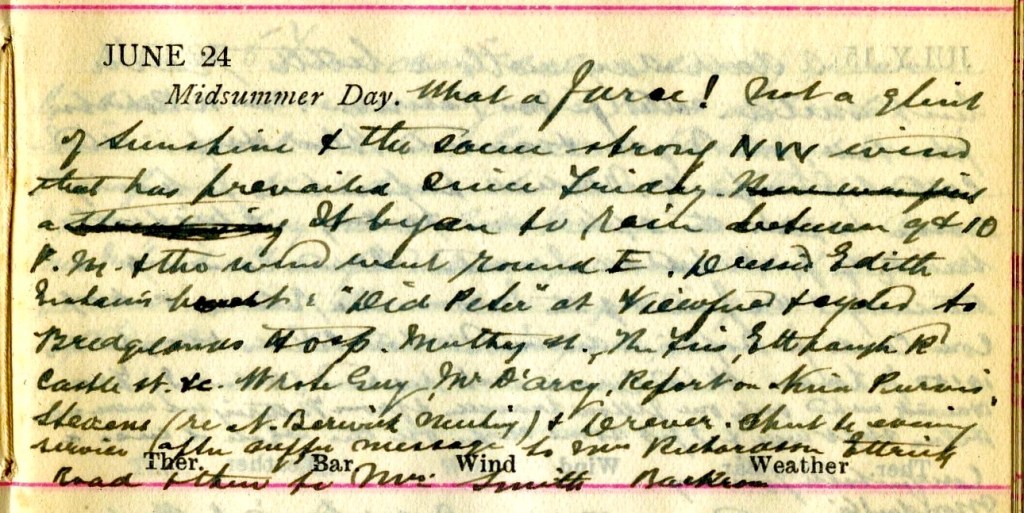 JUNE 24
Midsummer Day. What a farce! Not a glint
of sunshine & the same strong NW wind
that has prevailed since Friday.
a It began to rain between 9 & 10
P.M. & the wind went round E. Dressed Edith
"Did Peter" at Viewfield & cycled to
Bridgelands Hosp. Murthy St., The Firs, R
Castle St. &c. Wrote Guy, Mr D'arcy, Report on Purvis,
Stevens (re N. Berwick Meeting) & Drever. to evening
service after message to Mrs Richardson Ettrick
Ther. Bar. Wind Weather
Road & then to Mrs Smith